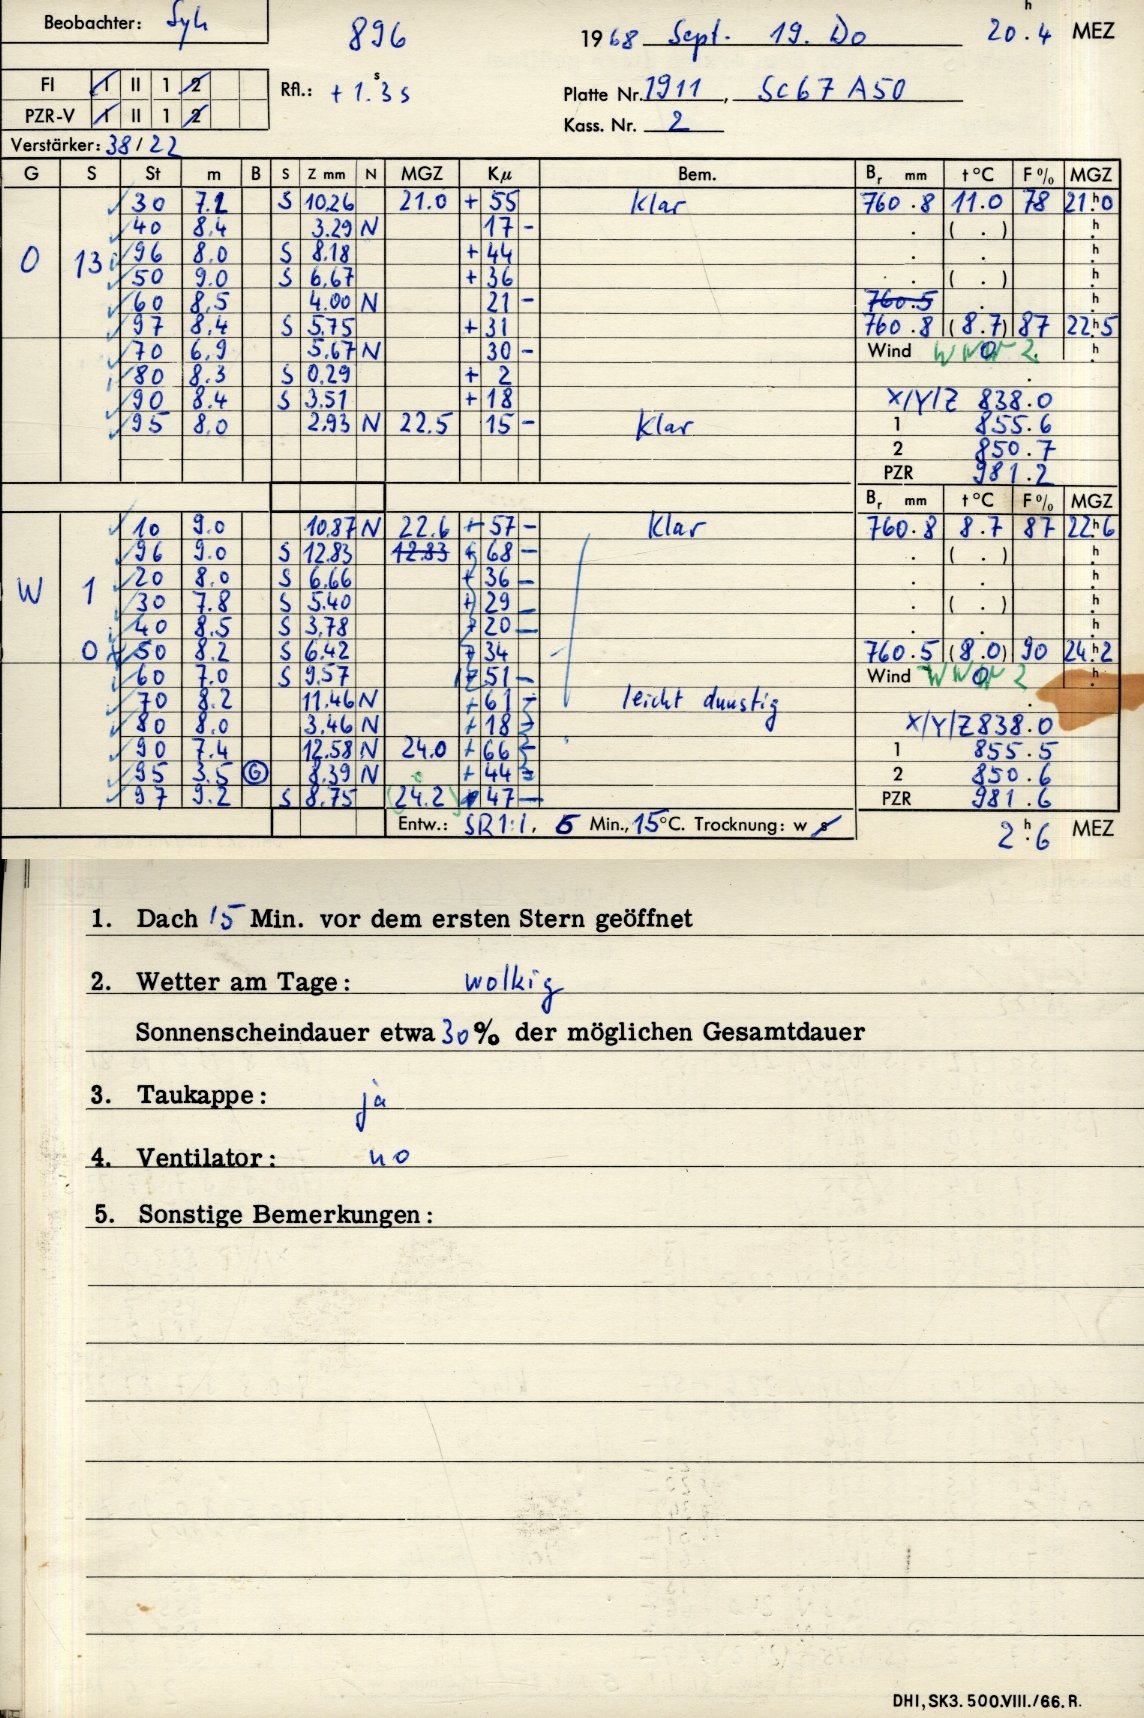 Beobachter: Syh
896
1968 Sept. 19. Do 20h.4 MEZ
FI I II 1 2
PZR-V I II 1 2
Rfl.: + 1.s3 s
Platte Nr. 1911, Sc67 A50
Kass. Nr. 2
Verstärker: 38/22
G S St m B S Z mm N MGZ Kμ Bem. Br mm t °C F % MGZ
30 7.1 S 10.26 21.0 + 55 klar 760.8 11.0 78 21h.0
40 8.4 3.29 N 17 - . ( . ) h
O 13 96 8.0 S 8.18 + 44 . . h
50 9.0 S 6.67 + 36 . ( . ) h
60 8.5 4.00 N 21 - 760.5 . h
97 8.4 S 5.75 + 31 760.8 (8.7) 87 22h.5
70 6.9 5.67 N 30 - Wind WNW 2 h
80 8.3 S 0.29 + 2
90 8.4 S 3.51 + 18 X/Y/Z 838.0
95 8.0 2.93 N 22.5 15 - klar 1 855.6
2 850.7
PZR 981.2
Br mm t °C F % MGZ
10 9.0 10.87 N 22.6 + 57 - klar 760.8 8.7 87 22h.6
96 9.0 S 12.83 12.83 + 68 - . ( . ) h
W 1 20 8.0 S 6.66 + 36 - . . h
30 7.8 S 5.40 + 29 - . ( . ) h
40 8.5 S 3.78 + 20 - . h
0 50 8.2 S 6.42 + 34 760.5 (8.0) 90 24h.2
60 7.0 S 9.57 + 51 - Wind WNW 2 h
70 8.2 11.46 N + 61 - leicht dunstig
80 8.0 3.46 N + 18 - X/Y/Z 838.0
90 7.4 12.58 N 24.0 + 66 - 1 855.5
95 3.5 G 8.39 N + 44 - 2 850.6
97 9.2 S 8.75 (24.2) 47 - PZR 981.6
Entw.: SR 1:1, 5 Min., 15°C. Trocknung: w s
2h.6 MEZ
1. Dach 15 Min. vor dem ersten Stern geöffnet
2. Wetter am Tage: wolkig
Sonnenscheindauer etwa 30% der möglichen Gesamtdauer
3. Taukappe: ja
4. Ventilator: no
5. Sonstige Bemerkungen:
DHI, SK3. 500.VIII./66. R.